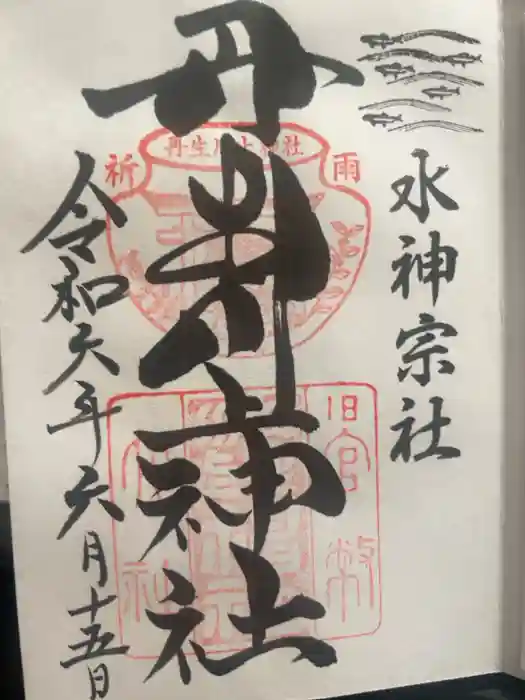 水神宗社
丹生川上神社
令和六年六月十五日
丹生川上神社
祈雨
旧官幣
社